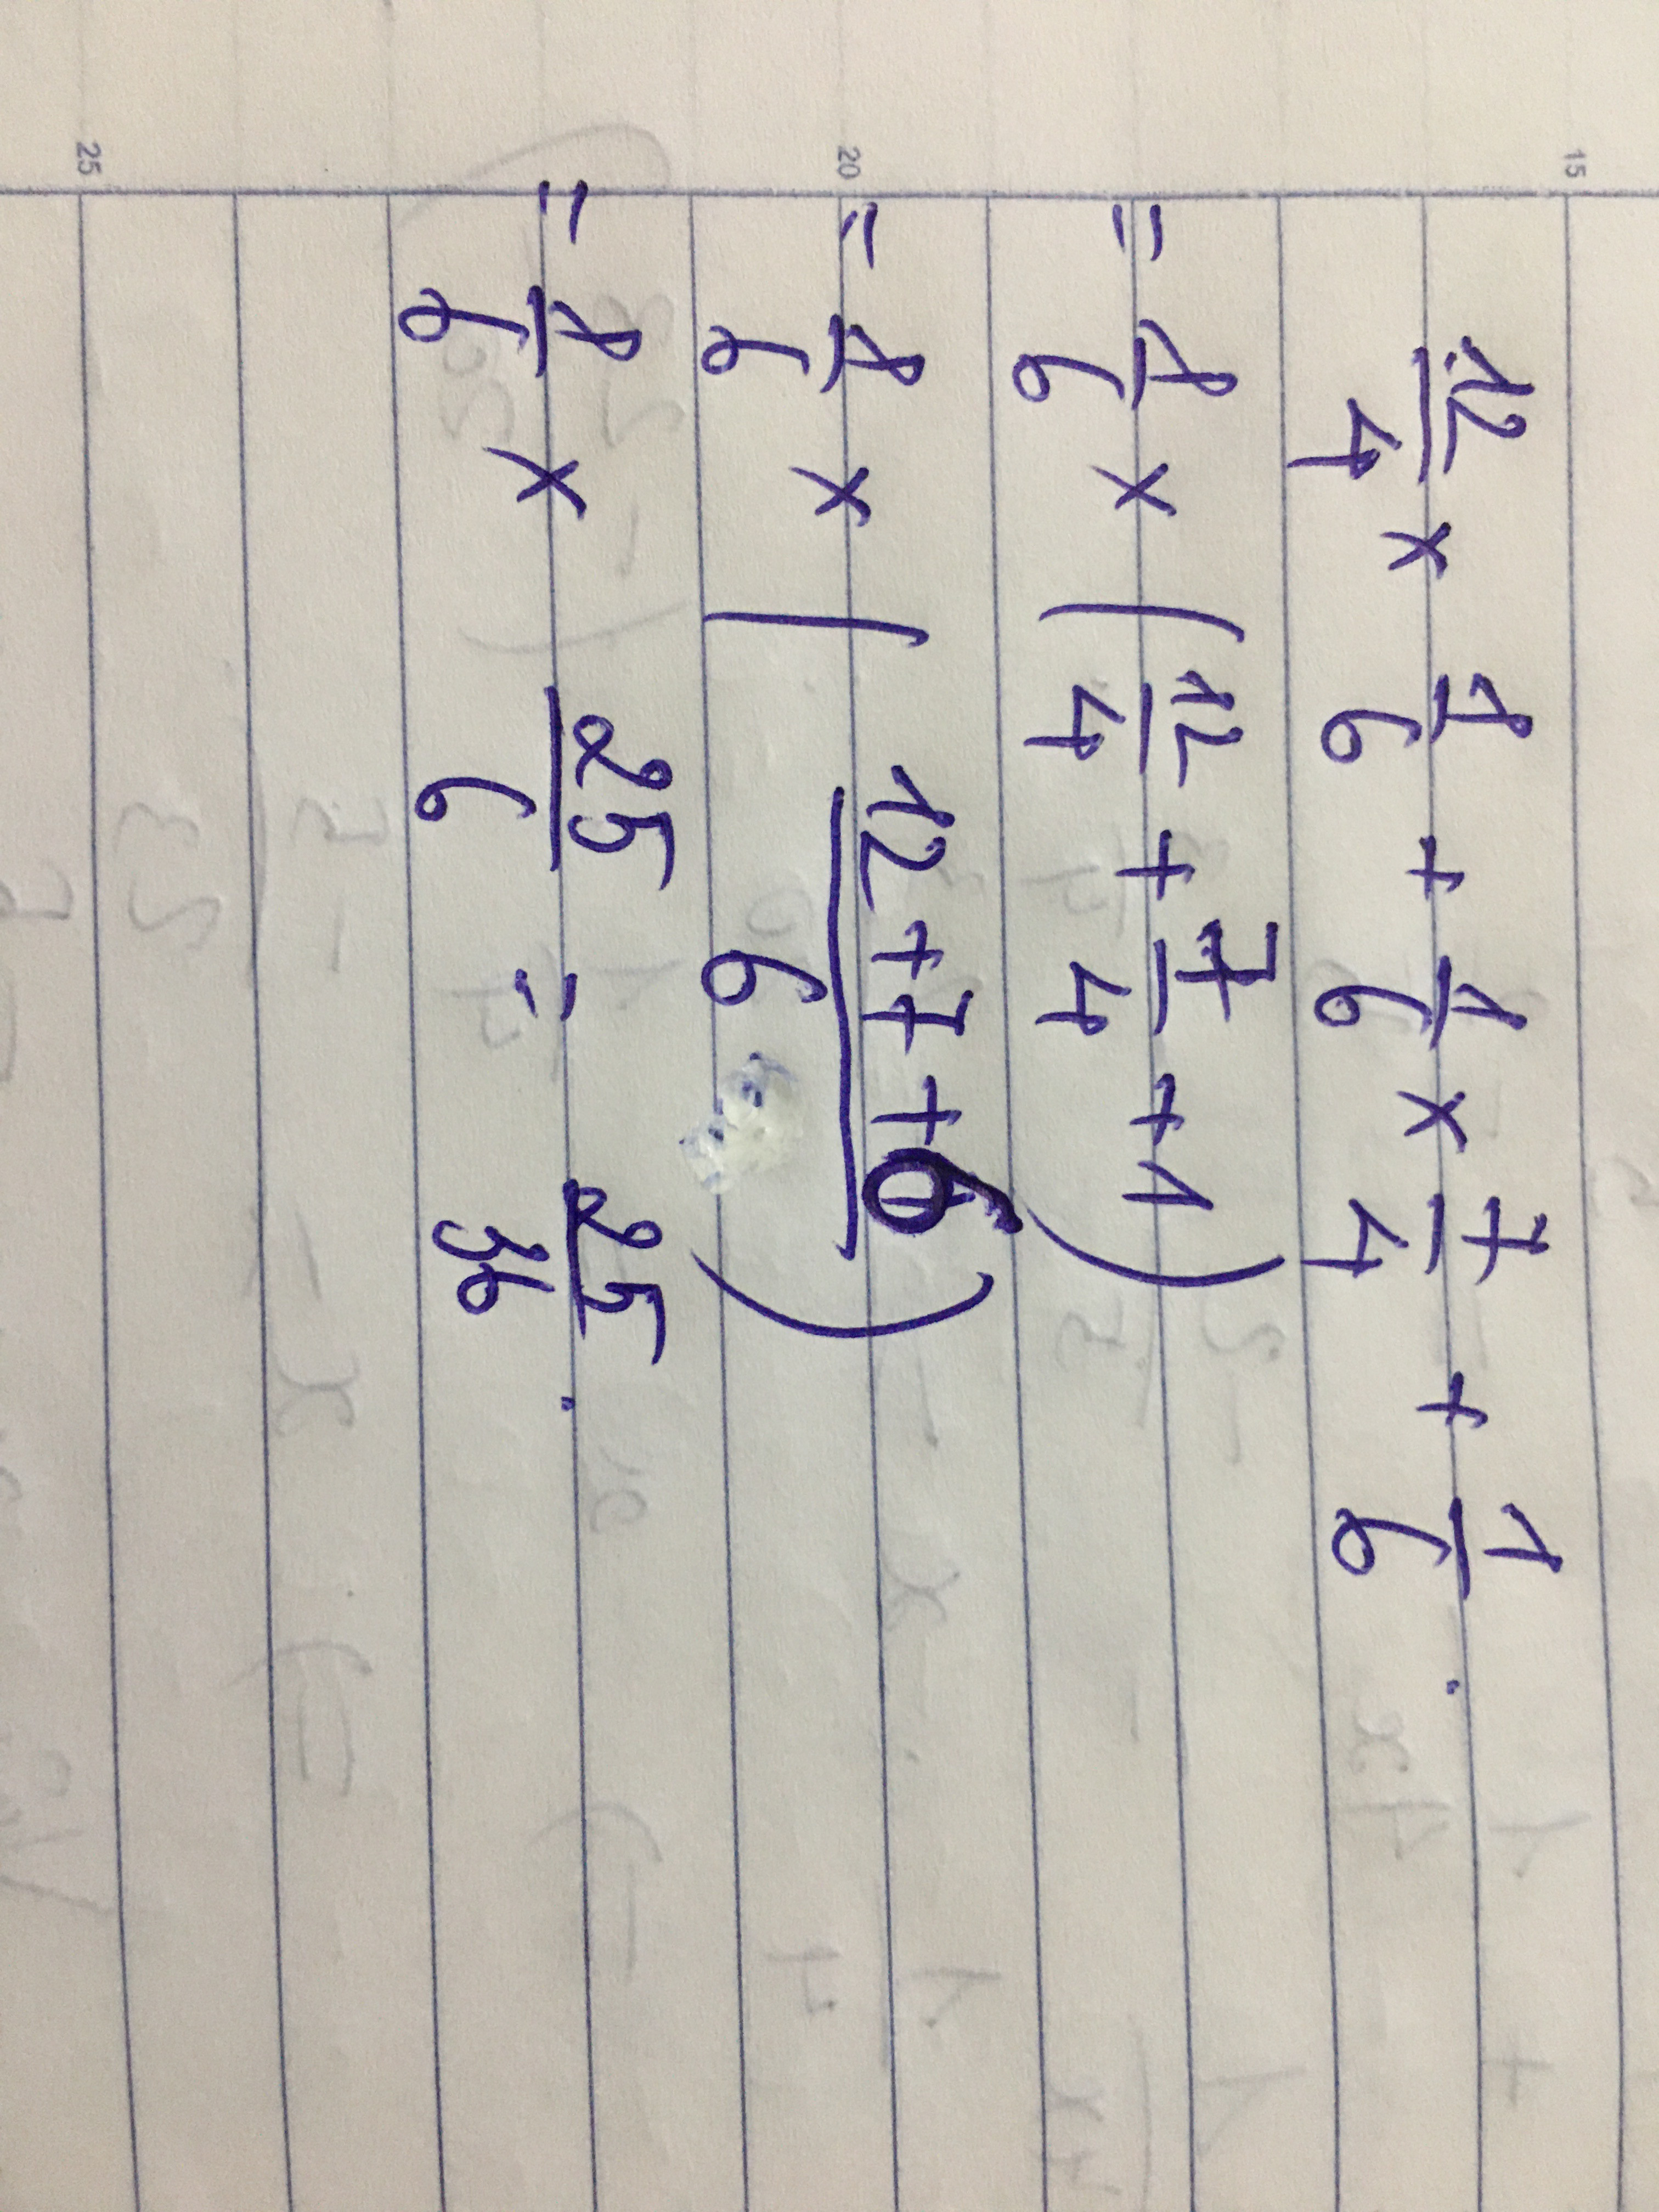 12/4 × 1/6 + 1/6 × 7/4 + 1/6 .
= 1/6 × ( 12/4 + 7/4 + 1 )
= 1/6 × ( 12 + 7 + 6 / 6 )
= 1/6 × 25/6 = 25/36 .
15
20
25